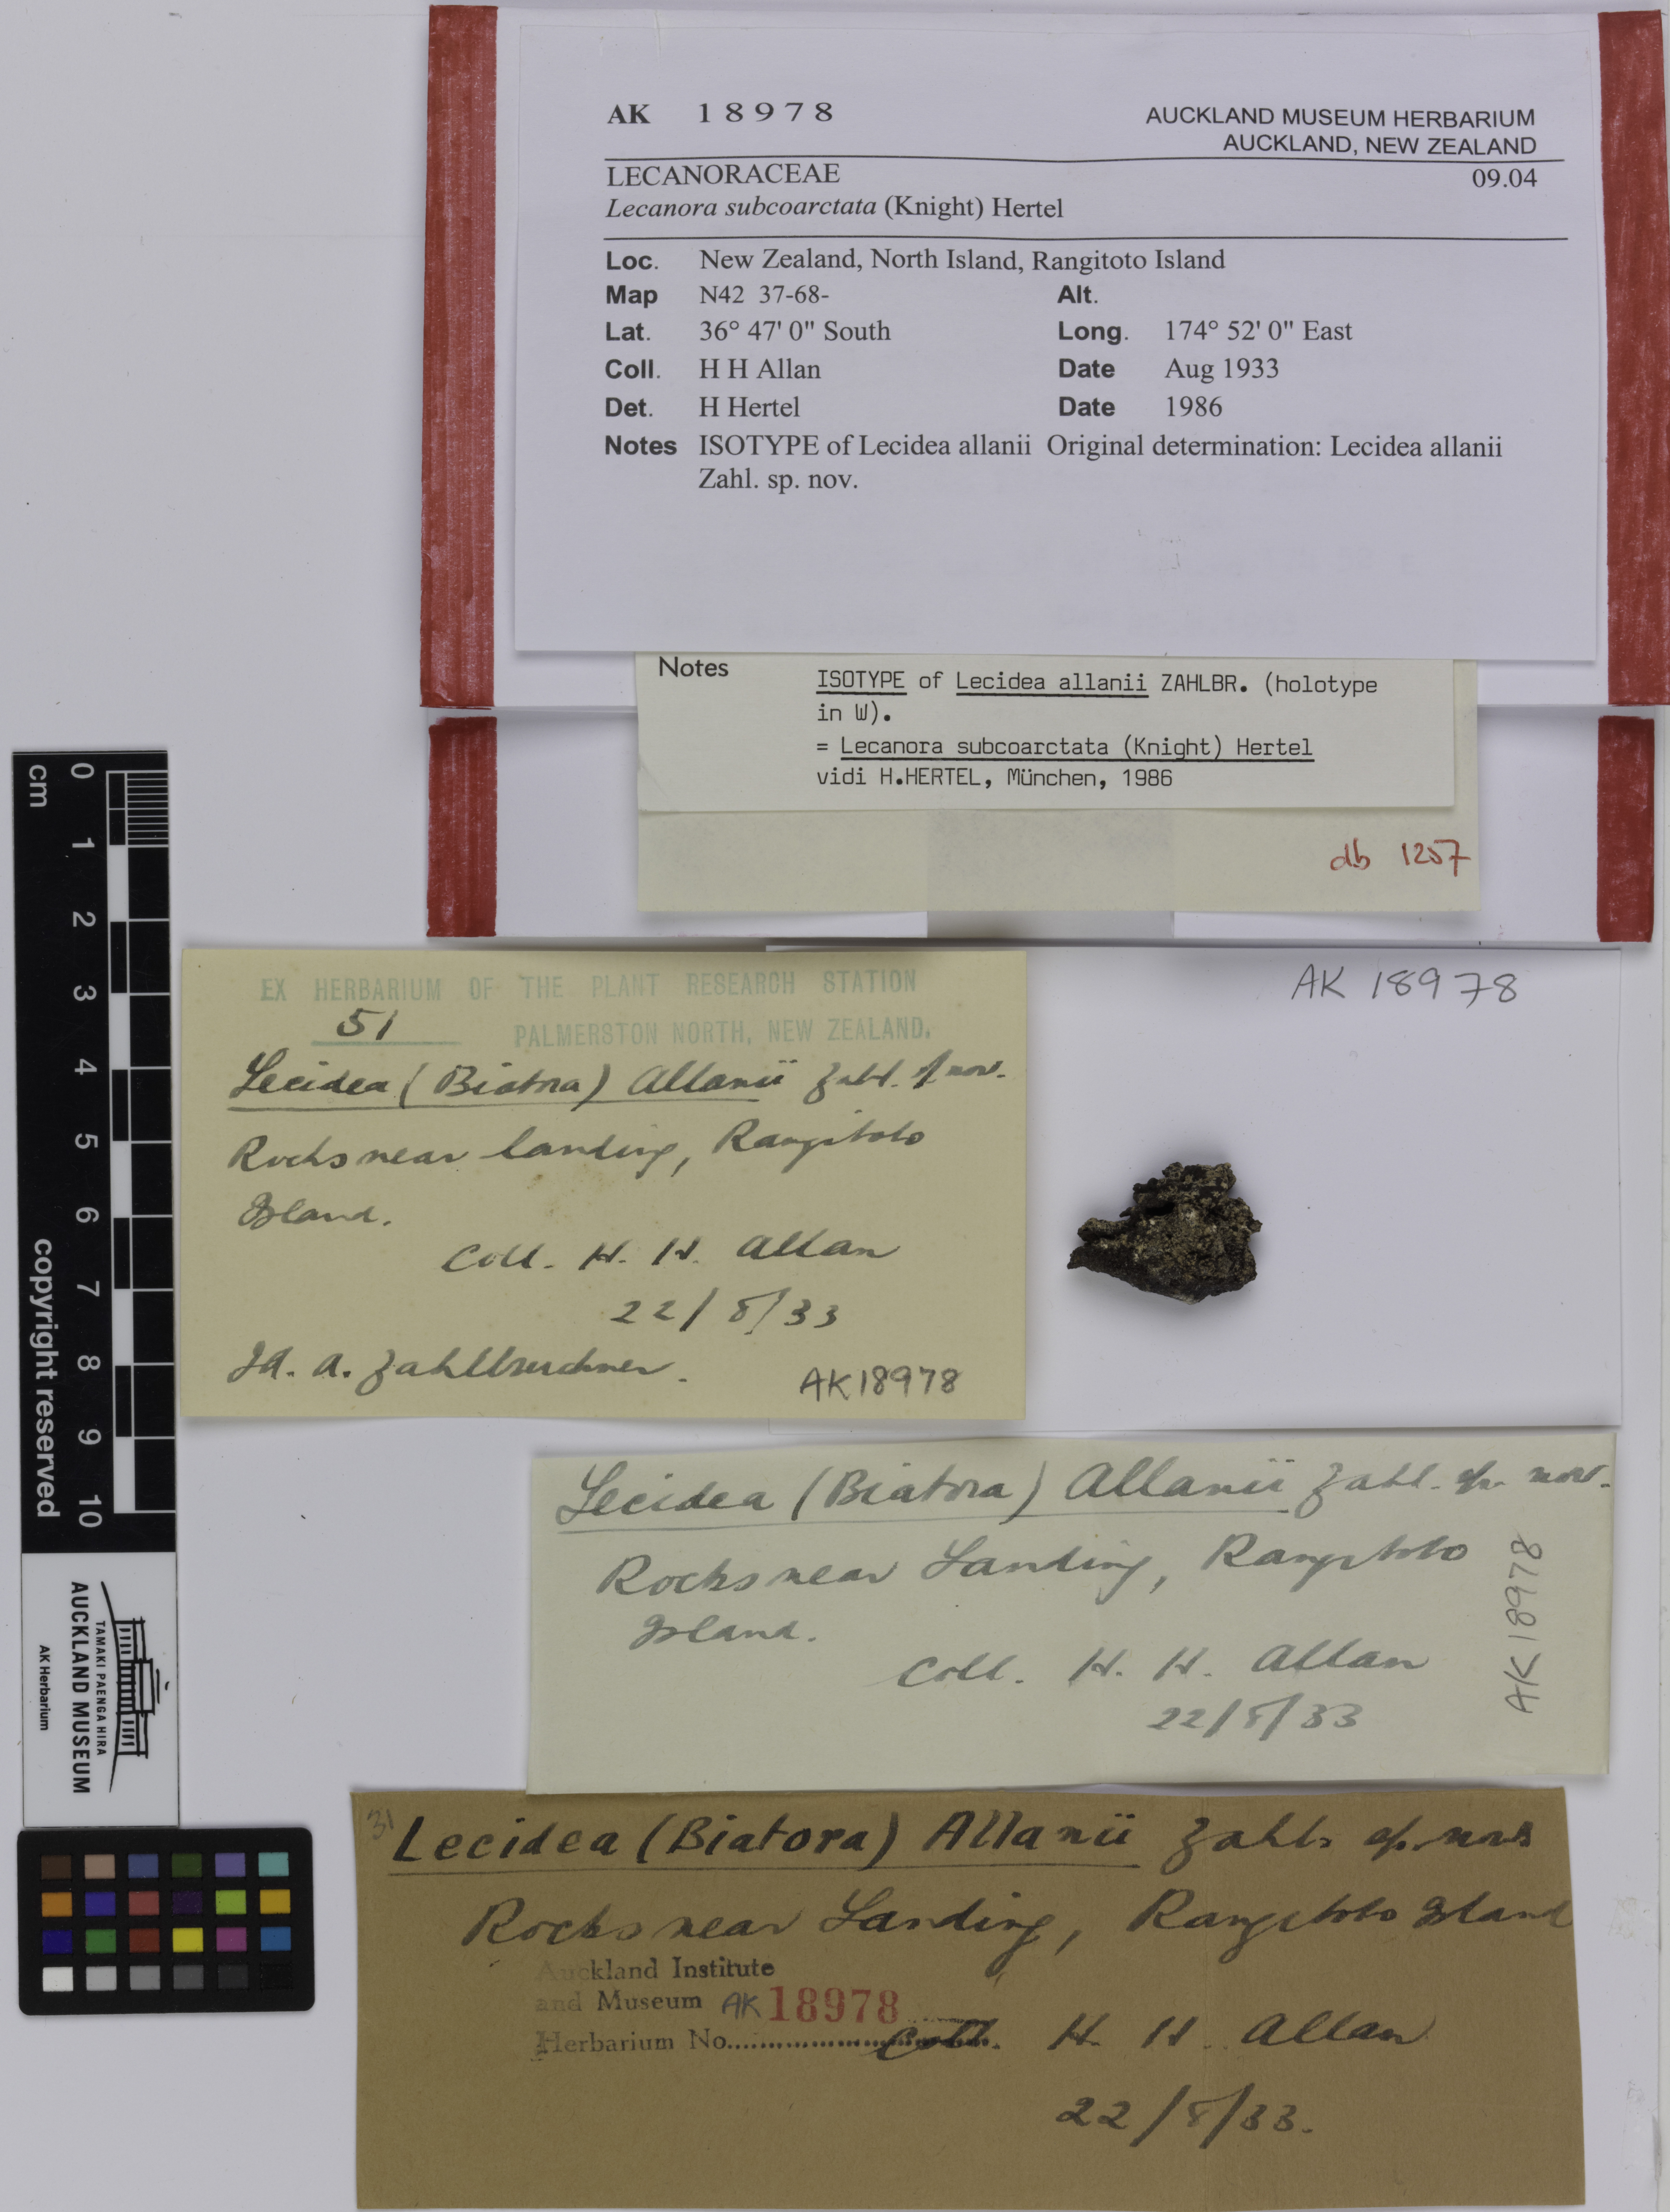 AK 18978
AUCKLAND MUSEUM HERBARIUM
AUCKLAND, NEW ZEALAND
LECANORACEAE 09.04
Lecanora subcoarctata (Knight) Hertel
Loc. New Zealand, North Island, Rangitoto Island
Map N42 37-68- Alt.
Lat. 36° 47' 0" South Long. 174° 52' 0" East
Coll. H H Allan Date Aug 1933
Det. H Hertel Date 1986
Notes ISOTYPE of Lecidea allanii Original determination: Lecidea allanii
Zahl. sp. nov.
Notes ISOTYPE of Lecidea allanii ZAHLBR. (holotype
in W).
= Lecanora subcoarctata (Knight) Hertel
vidi H.HERTEL, München, 1986
db 1257
cm 0 1 2 3 4 5 6 7 8 9 10
copyright reserved
EX HERBARIUM OF THE PLANT RESEARCH STATION
51 PALMERSTON NORTH, NEW ZEALAND.
Lecidea (Biatora) Allanii Zahl. sp. nov.
Rocks near landing, Rangitoto
Island.
Coll. H. H. Allan
22/8/33
Id. A. Zahlbruckner.
AK18978
AK 18978
Lecidea (Biatora) Allanii Zahl. sp. nov.
Rocks near Landing, Rangitoto
Island.
Coll. H. H. Allan
22/8/33
AK 18978
TAMAKI PAENGA HIRA
AUCKLAND MUSEUM
AK Herbarium
31
Lecidea (Biatora) Allanii Zahlb sp. nov
Rocks near Landing, Rangitoto Island
Auckland Institute
and Museum AK 18978
Herbarium No..... Coll. H. H. Allan
22/8/33.